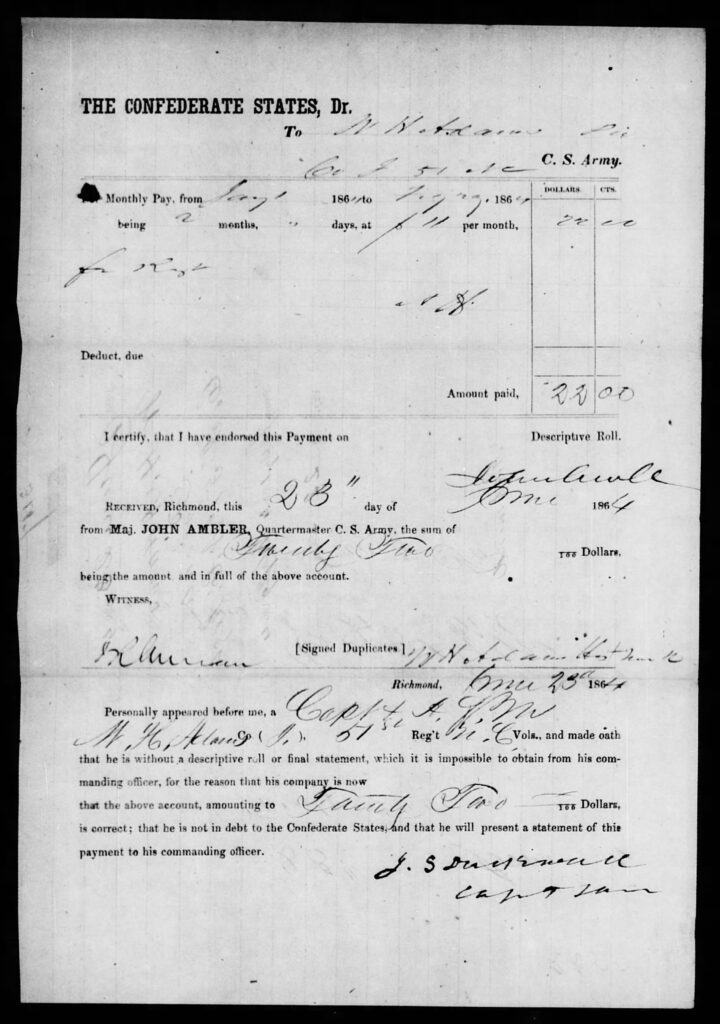 THE CONFEDERATE STATES, Dr.
To W H Adams
Co I 51 NC C. S. Army.
Monthly Pay, from Jany 1 1864 to 1864 DOLLARS. CTS.
being 2 months, " days, at $ 11 per month, 22 00
for
Deduct, due
Amount paid, 22 00
I certify, that I have endorsed this Payment on Descriptive Roll.
RECEIVED, Richmond, this 23" day of 1864
from Maj. JOHN AMBLER, Quartermaster C. S. Army, the sum of
Twenty Two 100 Dollars,
being the amount and in full of the above account.
WITNESS,
[Signed Duplicates.] W H Adams
Richmond, 23d 1864
Personally appeared before me, a Capt & A. Q. M
W. H. Adams Co ( I ). 51st Reg't N. C Vols., and made oath
that he is without a descriptive roll or final statement, which it is impossible to obtain from his com-
manding officer, for the reason that his company is now
that the above account, amounting to Twenty Two 100 Dollars,
is correct; that he is not in debt to the Confederate States, and that he will present a statement of this
payment to his commanding officer.
J. S
Capt